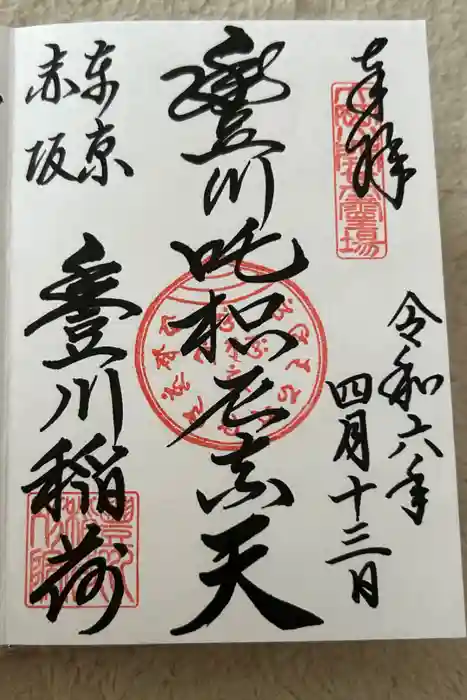 奉拝
令和六年
四月十三日
豊川吒枳尼真天
東京
赤坂
豊川稲荷
霊場